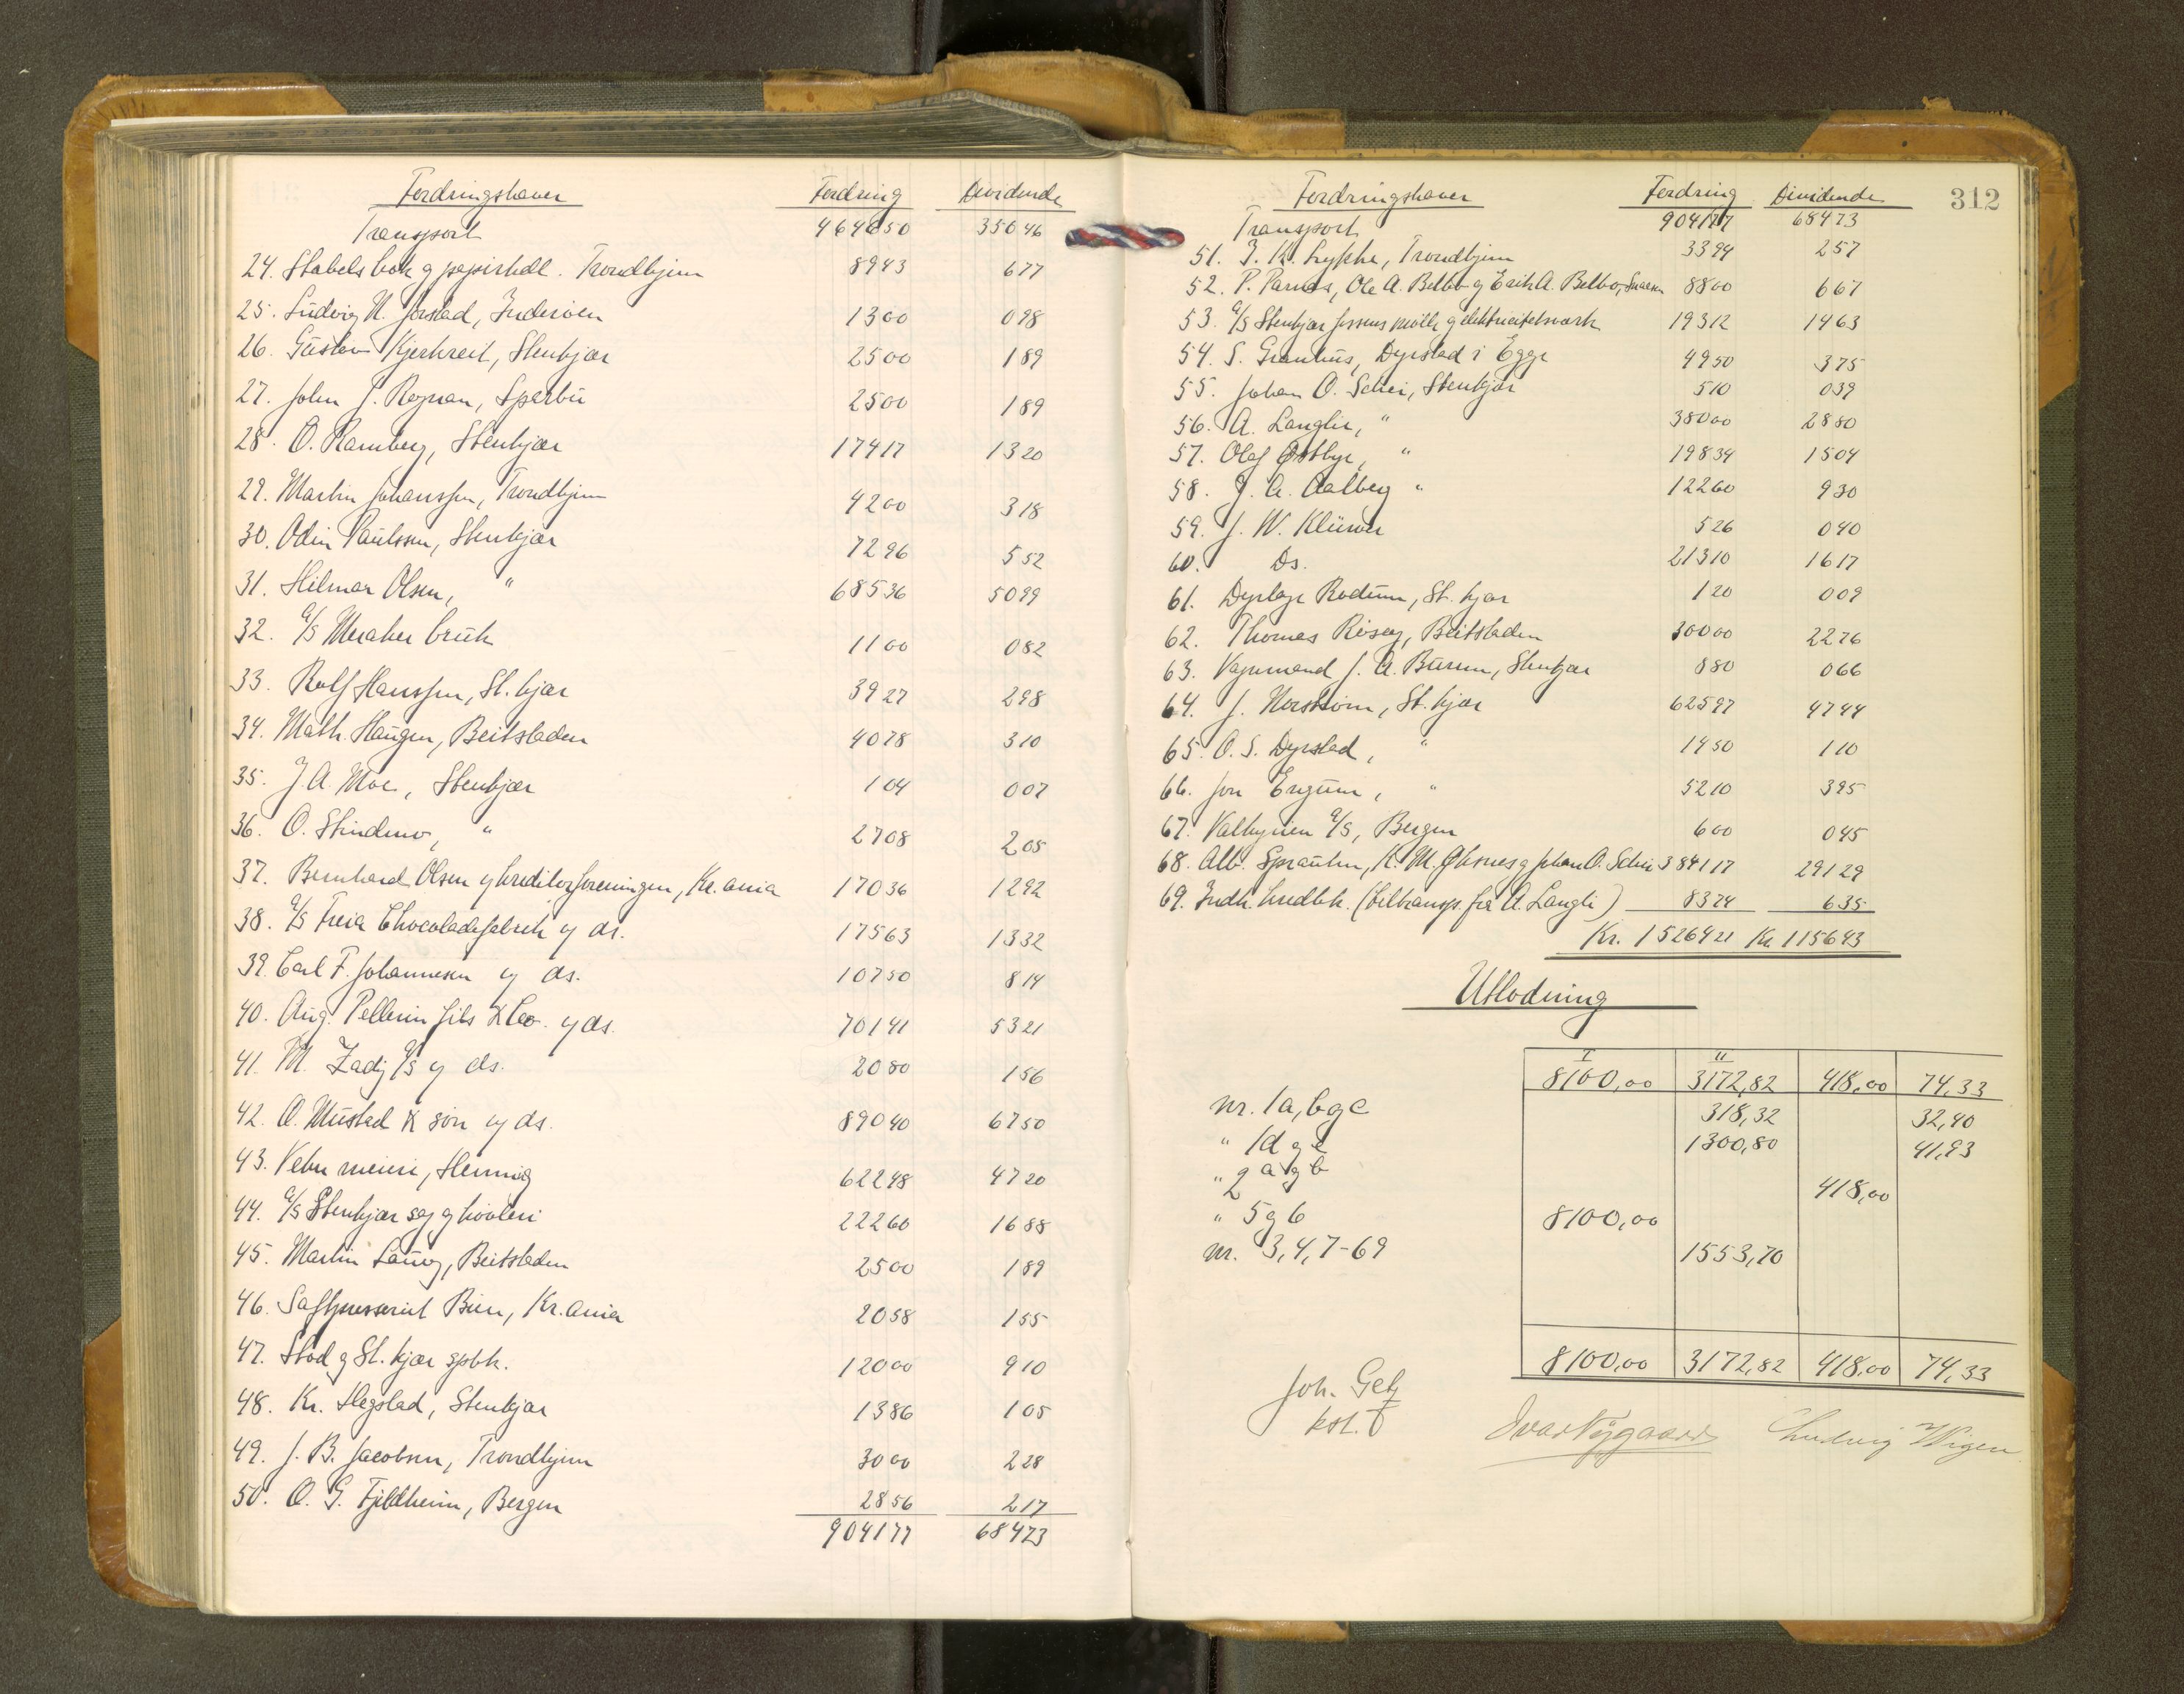 Fordringshaver Fordring Dividende
Transport 464650 35046
24. Stabels bok g papirhdl. Trondhjem 8943 677
25. Ludvig N. Jørstad, Inderøen 1300 098
26. Gustav Kjerkreit, Stenkjær 2500 189
27. John J. Rognan, Sparbu 2500 189
28. O. Ramberg, Stenkjær 17417 1320
29. Martin Johanssen, Trondhjem 4200 318
30. Odin Paulssen, Stenkjær 7296 552
31. Hilmar Olsen, " 68536 5099
32. A/S Meraker bruk 1100 082
33. Rolf Hanssen, St.kjær 3927 298
34. Math. Haugen, Beitstaden 4078 310
35. J. A. Moe, Stenkjær 104 007
36. O. Stindmo, " 2708 205
37. Bernhard Olsen g kreditorforeningen, Kr.ania 17036 1292
38. A/S Freia Chocoladefabrik g ds. 17563 1332
39. Carl F. Johannesen g ds. 10750 814
40. Aug. Pellerin fils & Co. g ds. 70141 5321
41. M. Zadig A/S g ds. 2080 156
42. O. Mustad & søn g ds. 89040 6750
43. Vebu meieri, Henning 62248 4720
44. A/S Stenkjær sag g høvleri 22260 1688
45. Martin Laūvog, Beitstaden 2500 189
46. Saftpresseriet Bien, Kr.ania 2058 155
47. Stod g St.kjær spbk. 12000 910
48. Kr. Hegstad, Stenkjær 1386 105
49. J. B. Jacobsen, Trondhjem 3000 228
50. O. G. Fjeldheim, Bergen 2856 217
904177 68473
312
Fordringshaver Fordring Dividende
Transport 904177 68473
51. J. K. Lykke, Trondhjem 3394 257
52. P. Parnas, Ole A. Belbo g Erik A. Belbo, Snaasen 8800 667
53. A/S Stenkjær fossens mølle g elektricitetsverk 19312 1463
54. S. Granhus, Dyrstad i Egge 4950 375
55. Johan O. Schei, Stenkjær 510 039
56. A. Langli, " 38000 2880
57. Olaf Østbye, " 19834 1504
58. J. A. Aalberg " 12260 930
59. J. W. Klüwer 526 040
60. Ds. 21310 1617
61. Dyrlæge Rødum, St.kjær 120 009
62. Thomas Røseg, Beitstaden 30000 2276
63. Vognmand J. A. Buran, Stenkjær 880 066
64. J. Norstrøm, St.kjær 62597 4744
65. O. S. Dyrstad, " 1450 110
66. Jon Ergum, " 5210 395
67. Valkyrien A/S, Bergen 600 045
68. Alb. Sprauten, K. M. Øksnes g Johan O. Schei 384117 29129
69. Indh. kredbk. (tiltransp. fra A. Langli) 8374 635
Kr. 1526421 Kr 115643
Utlodning
I II
8100,00 3172,82 418,00 74,33
nr. 1a, b g c 318,32 32,40
" 1d g e 1300,80 41,93
" 2 a g b 418,00
" 5 g 6 8100,00
nr. 3, 4, 7-69 1553,70
8100,00 3172,82 418,00 74,33
Joh. Getz
kst.
Ivar Nygaard Ludvig Wigen